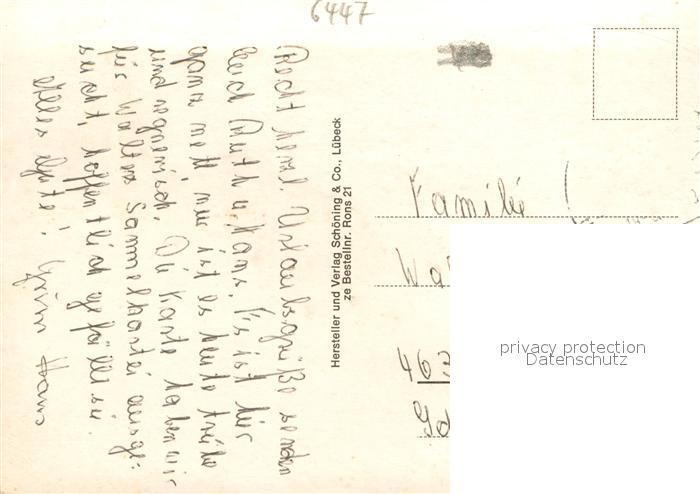 6447
Recht herzl. Urlaubsgrüße senden
Euch Ruth u. Hans. Es ist hier
ganz nett nur ist es heute trübe
und regnerisch. Die Karte haben wir
für Walters Sammelkartei ausge-
sucht, hoffentlich gefällt sie.
Alles Gute! Hans
Hersteller und Verlag Schöning & Co., Lübeck
ze Bestellnr. Rons 21
Familie
Wa
46
privacy protection
Datenschutz